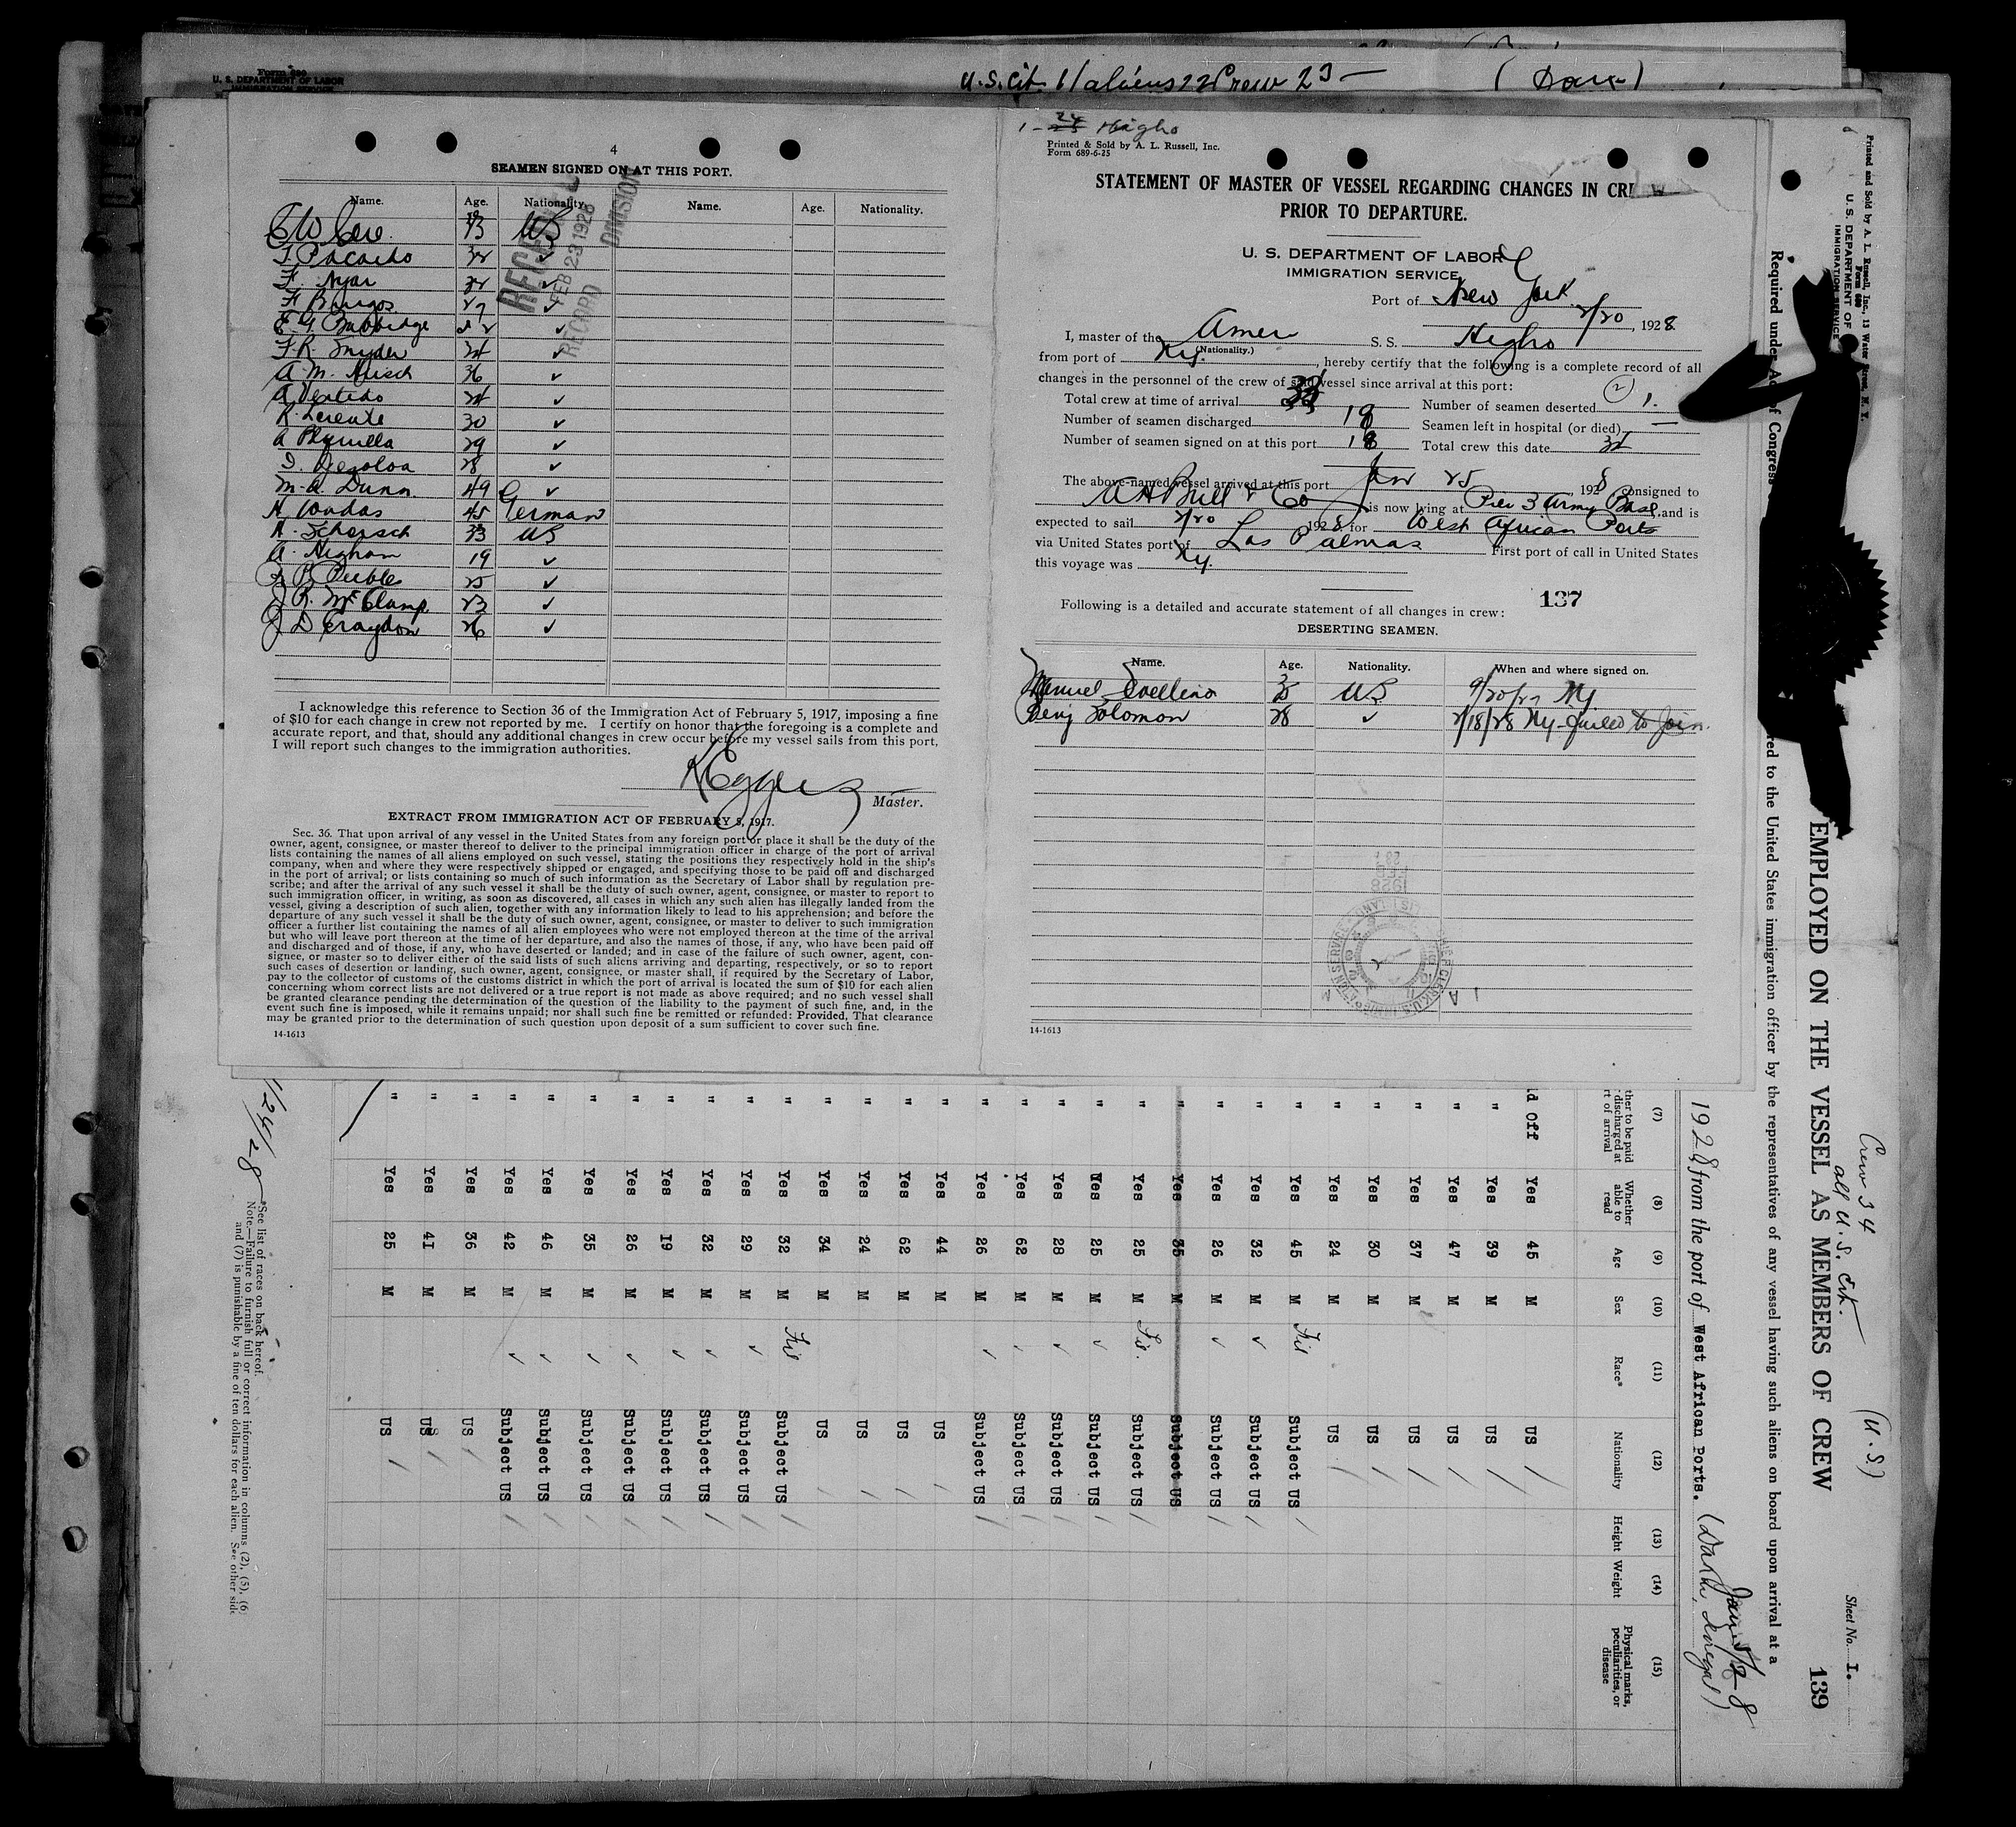 Form 689
U. S. DEPARTMENT OF LABOR
IMMIGRATION SERVICE
U.S. Cit. 61 aliens 22 Crew 23 —
4
SEAMEN SIGNED ON AT THIS PORT.
Name. Age. Nationality. Name. Age. Nationality.
US
F. Pacardo 32 ✓
F. ✓
F. Burgos 27 ✓
E. G. Babbidge ✓
F. R. Snyder 24 ✓
A. M. Hirsch 36 ✓
A Vertido 24 ✓
R. Lorente 30 ✓
29 ✓
28 ✓
M. A. Dunn 49 ✓
H 45 German
H. Schorsch 33 US
A. Higham 19 ✓
Peebles 25 ✓
J R. McClamp 23 ✓
J D Craydon 26 ✓
RECEIVED
FEB 23 1928
RECORD DIVISION
I acknowledge this reference to Section 36 of the Immigration Act of February 5, 1917, imposing a fine
of $10 for each change in crew not reported by me. I certify on honor that the foregoing is a complete and
accurate report, and that, should any additional changes in crew occur before my vessel sails from this port,
I will report such changes to the immigration authorities.
K Eggers
Master.
EXTRACT FROM IMMIGRATION ACT OF FEBRUARY 5, 1917.
Sec. 36. That upon arrival of any vessel in the United States from any foreign port or place it shall be the duty of the
owner, agent, consignee, or master thereof to deliver to the principal immigration officer in charge of the port of arrival
lists containing the names of all aliens employed on such vessel, stating the positions they respectively hold in the ship's
company, when and where they were respectively shipped or engaged, and specifying those to be paid off and discharged
in the port of arrival; or lists containing so much of such information as the Secretary of Labor shall by regulation pre-
scribe; and after the arrival of any such vessel it shall be the duty of such owner, agent, consignee, or master to report to
such immigration officer, in writing, as soon as discovered, all cases in which any such alien has illegally landed from the
vessel, giving a description of such alien, together with any information likely to lead to his apprehension; and before the
departure of any such vessel it shall be the duty of such owner, agent, consignee, or master to deliver to such immigration
officer a further list containing the names of all alien employees who were not employed thereon at the time of the arrival
but who will leave port thereon at the time of her departure, and also the names of those, if any, who have been paid off
and discharged and of those, if any, who have deserted or landed; and in case of the failure of such owner, agent, con-
signee, or master so to deliver either of the said lists of such aliens arriving and departing, respectively, or so to report
such cases of desertion or landing, such owner, agent, consignee, or master shall, if required by the Secretary of Labor,
pay to the collector of customs of the customs district in which the port of arrival is located the sum of $10 for each alien
concerning whom correct lists are not delivered or a true report is not made as above required; and no such vessel shall
be granted clearance pending the determination of the question of the liability to the payment of such fine, and, in the
event such fine is imposed, while it remains unpaid; nor shall such fine be remitted or refunded: Provided, That clearance
may be granted prior to the determination of such question upon deposit of a sum sufficient to cover such fine.
14-1613
Higho
Printed & Sold by A. L. Russell, Inc.
Form 689-6-25
STATEMENT OF MASTER OF VESSEL REGARDING CHANGES IN CREW
PRIOR TO DEPARTURE.
U. S. DEPARTMENT OF LABOR
IMMIGRATION SERVICE
Port of New York
2/20, 1928
I, master of the Amer S. S. Higho
(Nationality.)
from port of Ny., hereby certify that the following is a complete record of all
changes in the personnel of the crew of said vessel since arrival at this port:
Total crew at time of arrival Number of seamen deserted (2) 1.
Number of seamen discharged 18 Seamen left in hospital (or died) —
Number of seamen signed on at this port 18 Total crew this date
The above-named vessel arrived at this port Jan 25, 1928 consigned to
A H Bull & Co is now lying at Pier 3 Army Base, and is
expected to sail 2/20 1928 for West African Ports
via United States port of Las Palmas First port of call in United States
this voyage was Ny.
137
Following is a detailed and accurate statement of all changes in crew:
DESERTING SEAMEN.
Name. Age. Nationality. When and where signed on.
Manuel US 9/20/27 Ny
Benj Solomon 28 ✓ 2/18/28 Ny. failed to join
14-1613
Printed and Sold by A. L. Russell, Inc., 13 Water Street, N. Y.
Form 689
U. S. DEPARTMENT OF LABOR
IMMIGRATION SERVICE
Sheet No. 1.
Crew 34
all U.S. Cit.
(U.S)
EMPLOYED ON THE VESSEL AS MEMBERS OF CREW
139
red to the United States immigration officer by the representatives of any vessel having such aliens on board upon arrival at a
1928, from the port of West African Ports. (Dakar, Senegal)
(7) (8) (9) (10) (11) (12) (13) (14) (15)
Whether able to read Age Sex Race* Nationality Height Weight Physical marks, peculiarities, or disease
Off Yes 45 M US
" Yes 39 M US
" Yes 47 M US
" Yes 37 M US
" Yes 30 M US
" Yes 24 M US
" Yes 45 M Fil Subject US
" Yes 32 M ✓ Subject US
" Yes 26 M ✓ Subject US
" Yes 35 M Subject US
" Yes 25 M Fil. Subject US
" Yes 25 M ✓ Subject US
" Yes 28 M ✓ Subject US
" Yes 62 M ✓ Subject US
" Yes 26 M ✓ Subject US
" Yes 44 M US
" Yes 62 M US
" Yes 24 M US
" Yes 34 M US
" Yes 32 M Fil Subject US
" Yes 29 M ✓ Subject US
" Yes 32 M ✓ Subject US
" Yes 19 M ✓ Subject US
" Yes 26 M ✓ Subject US
" Yes 35 M ✓ Subject US
" Yes 46 M ✓ Subject US
" Yes 42 M ✓ Subject US
" Yes 36 M US
" Yes 41 M US
" Yes 25 M US
1/24/28
*See list of races on back hereof.
Note.—Failure to furnish full or correct information in columns (2), (5), (6)
and (7) is punishable by a fine of ten dollars for each alien. See other side